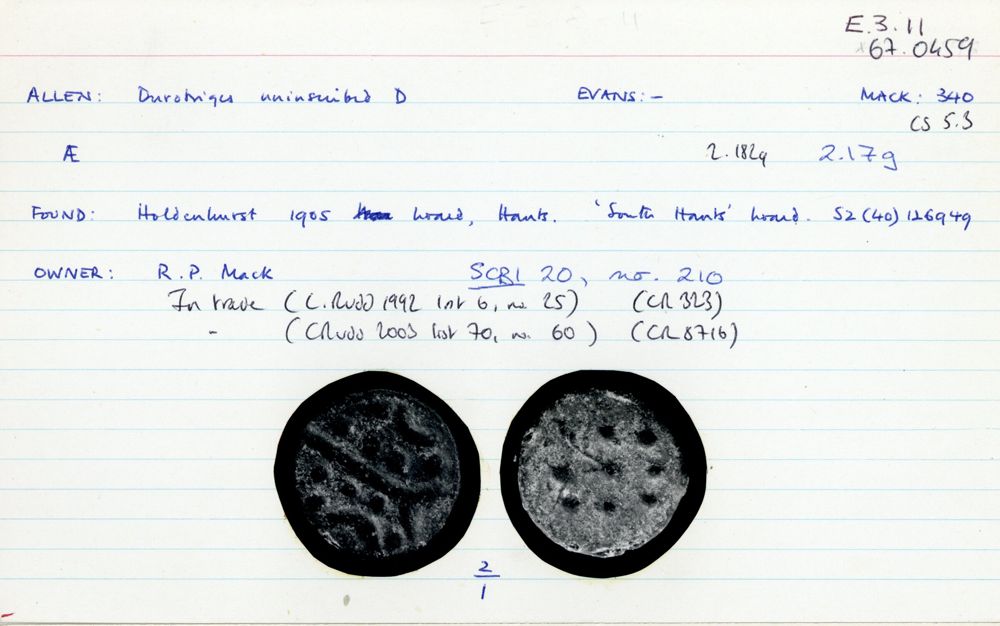 E.3.11
67.0459
ALLEN: Durotriges uninscribed D EVANS: – MACK: 340
CS 5.3
Æ 2.182g 2.17g
FOUND: Holdenhurst 1905 hoard, Hants. 'South Hants' hoard. SZ (40) 126949
OWNER: R.P. Mack SCBI 20, no. 210
In trade (C. Rudd 1992 list 6, no. 25) (CR 323)
– (C Rudd 2003 list 70, no. 60) (CR 8716)
2
1